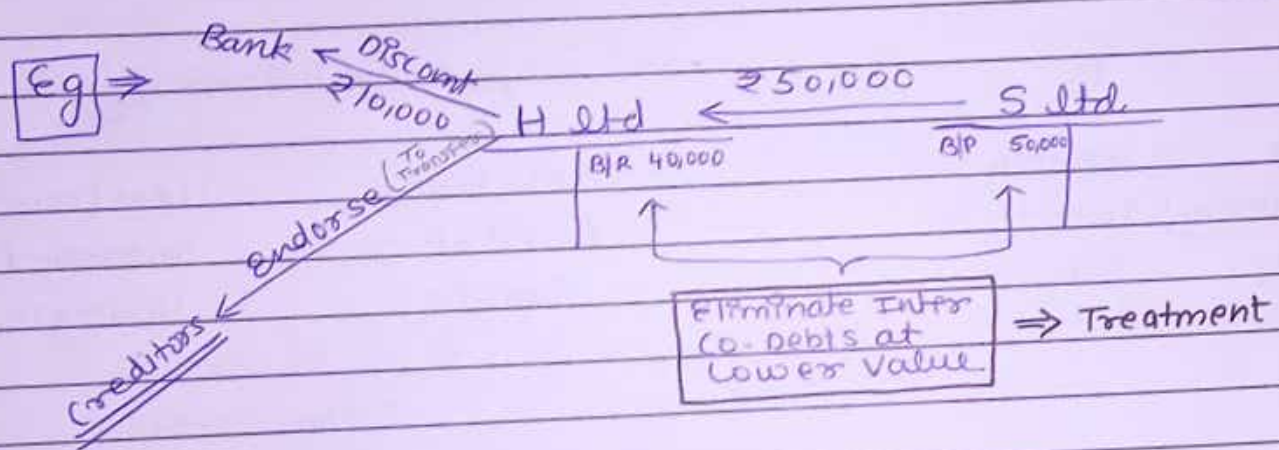 Eg ⇒
Bank ← Discount
₹10,000
H ltd
₹50,000
S ltd.
B/R 40,000
B/P 50,000
Endorse (To Transfer)
Creditors
Eliminate Inter
Co. Debts at
Lower Value
⇒ Treatment